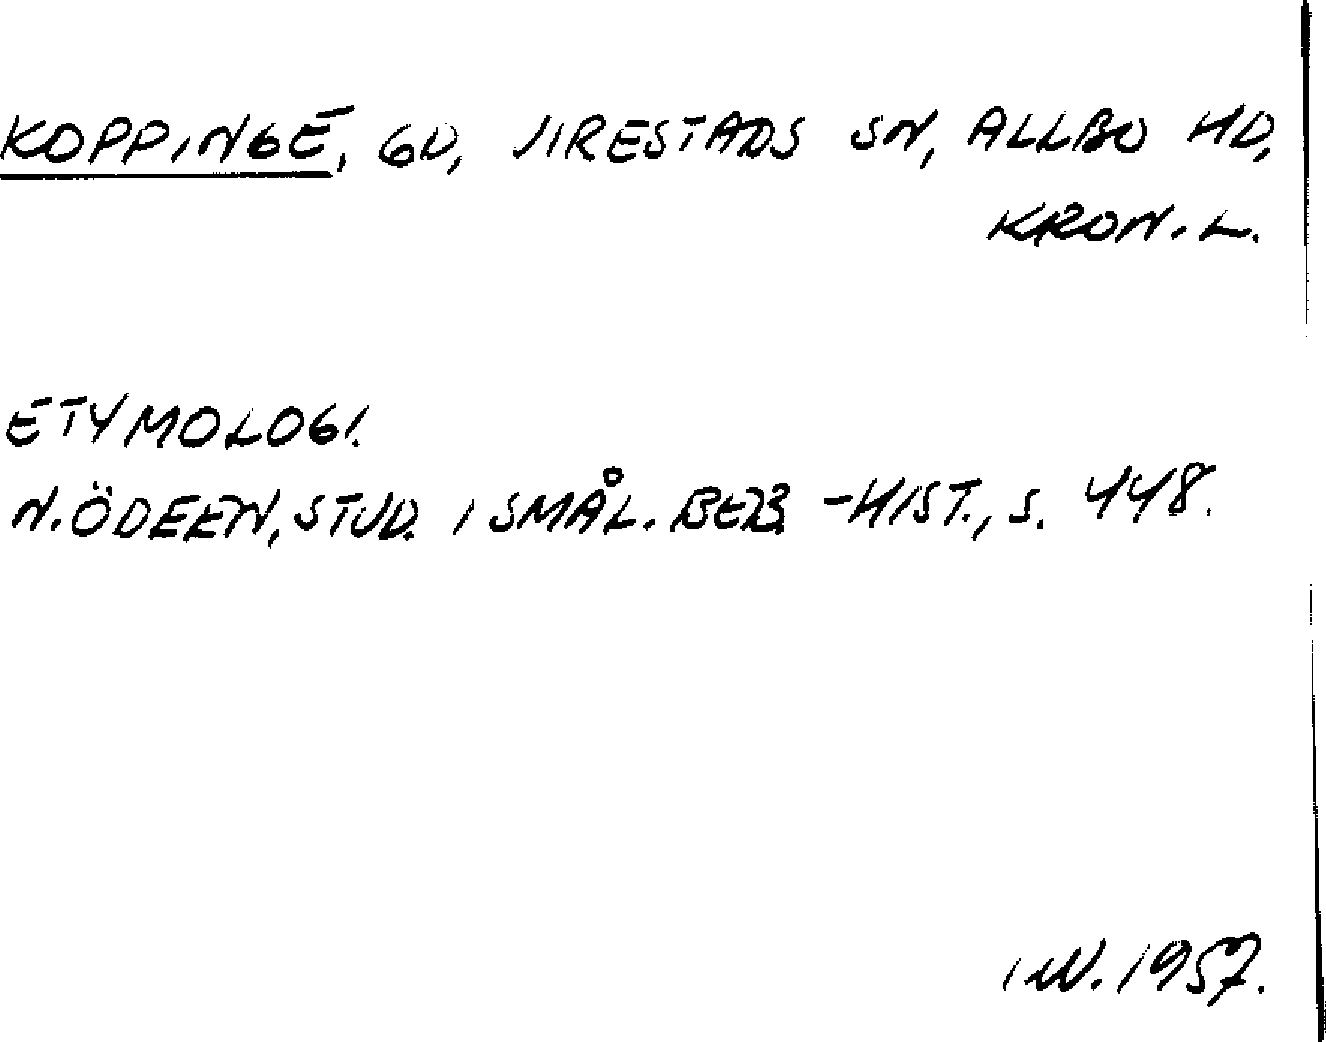 KOPPINGE, GD, VIRESTADS SN, ALLBO HD,
KRON. L.
ETYMOLOGI.
N. ÖDEEN, STUD. I SMÅL. BEB. -HIST., S. 448.
1957.